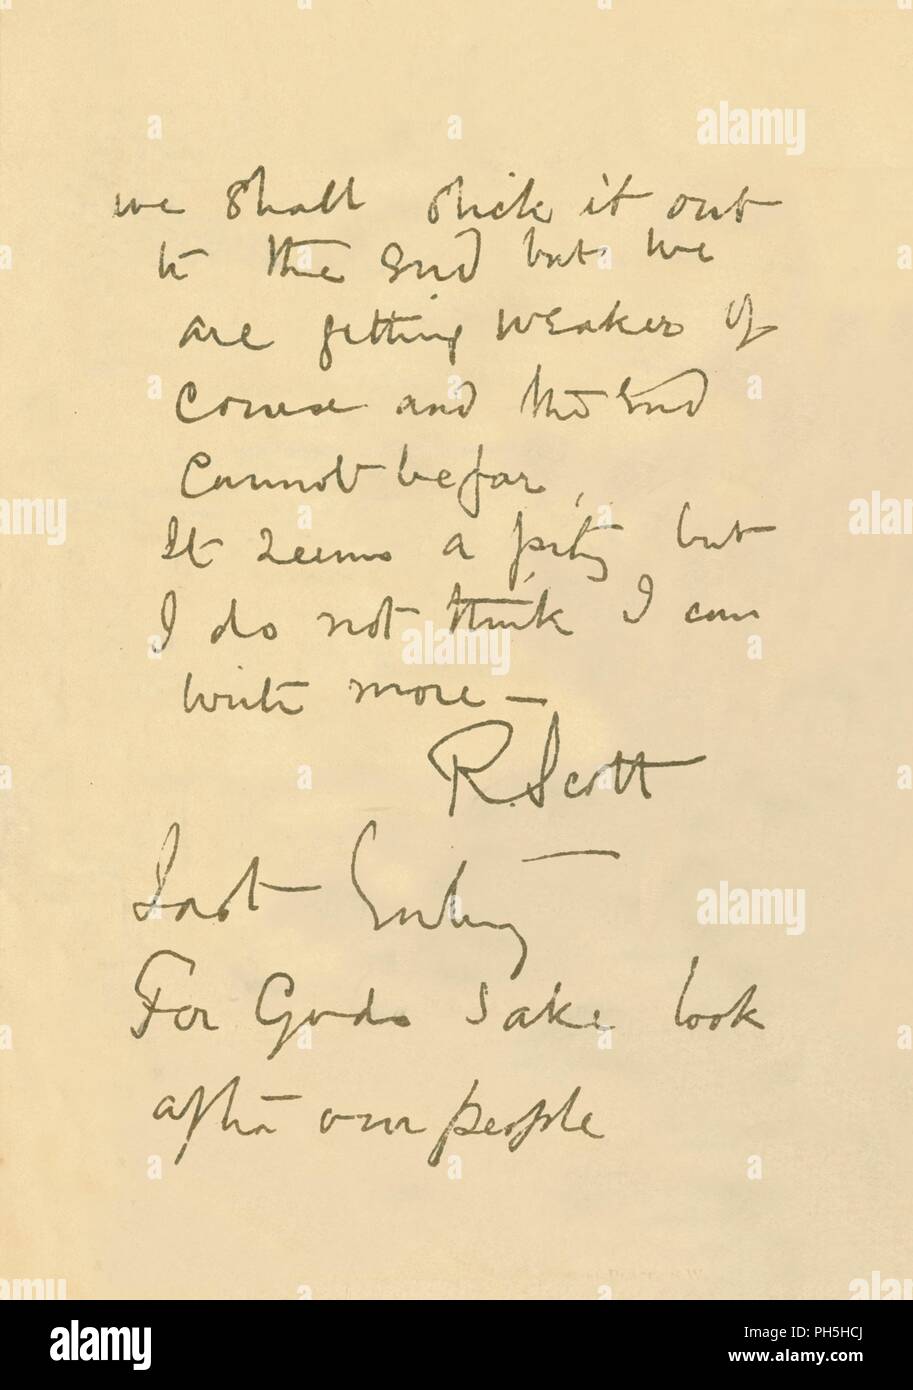 we shall stick it out
to the end but we
are getting weaker of
course and the end
cannot be far,
It seems a pity but
I do not think I can
write more —
R. Scott
Last Entry
For Gods sake look
after our people
alamy
Image ID: PH5HCJ
www.alamy.com